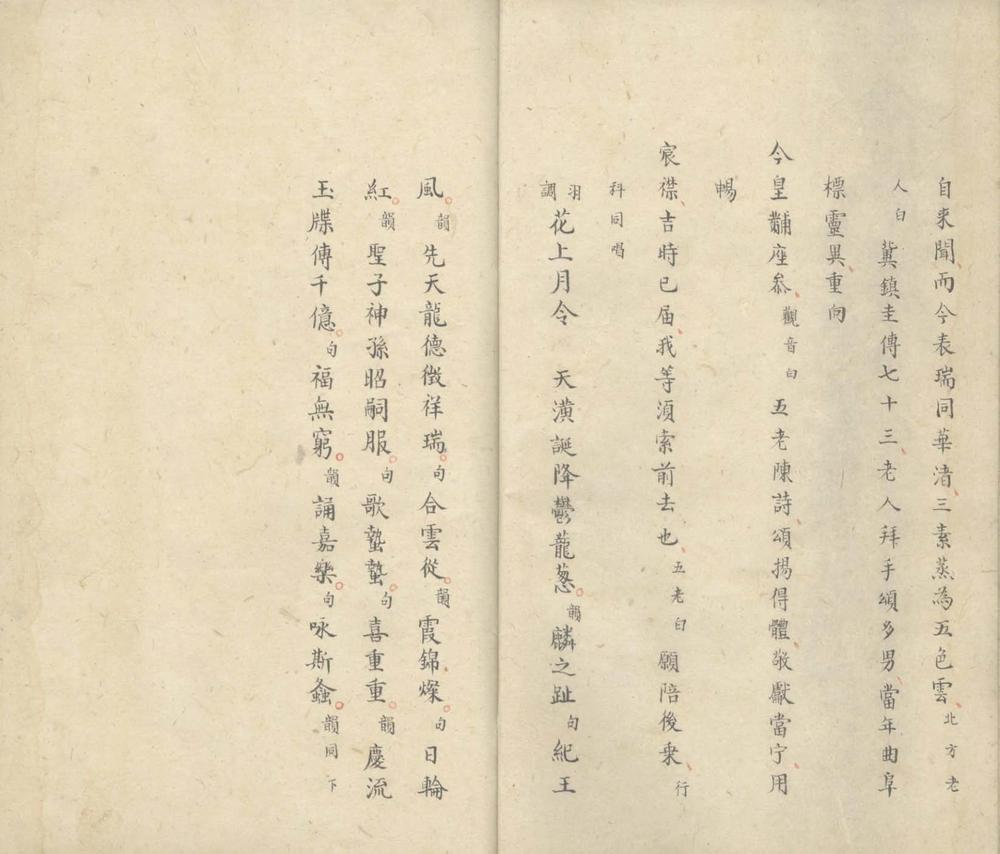 自来聞而今表瑞同華渚三素蒸為五色雲北方老
人白冀鎮圭傳七十三老人拜手頌多男當年曲阜
標靈異重向
今皇黼座叅觀音白五老陳詩頌揚得體敬獻當宁用
暢
宸襟吉時已届我等湏索前去也五老白願陪後乗行
科同唱
羽調花上月令 天潢誕降鬱龍葱韻麟之趾句紀王
風韻先天龍德徵祥瑞句合雲從韻霞錦燦句日輪
紅韻聖子神孫昭嗣服句歌蟄蟄句喜重重韻慶流
玉牒傳千億句福無窮韻誦嘉樂句咏斯螽韻同下